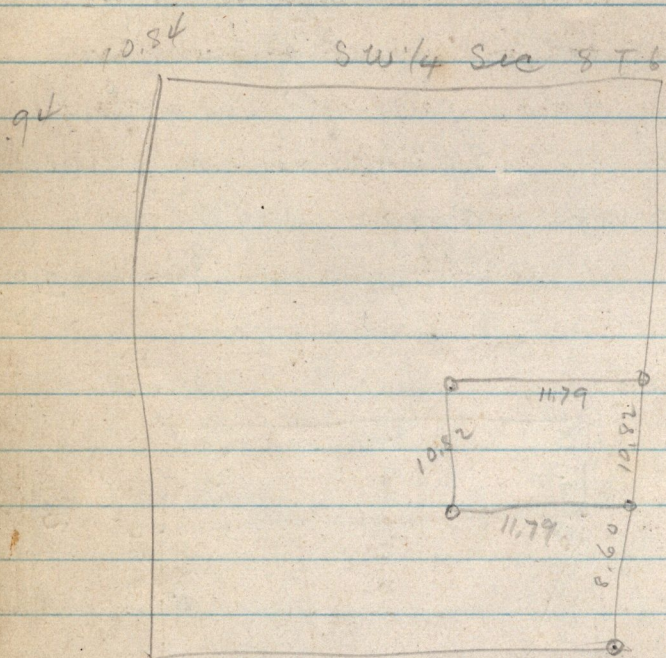 10.84
SW 1/4 Sec 8 T 6
94
11.79
10.82
10.82
11.79
8.60